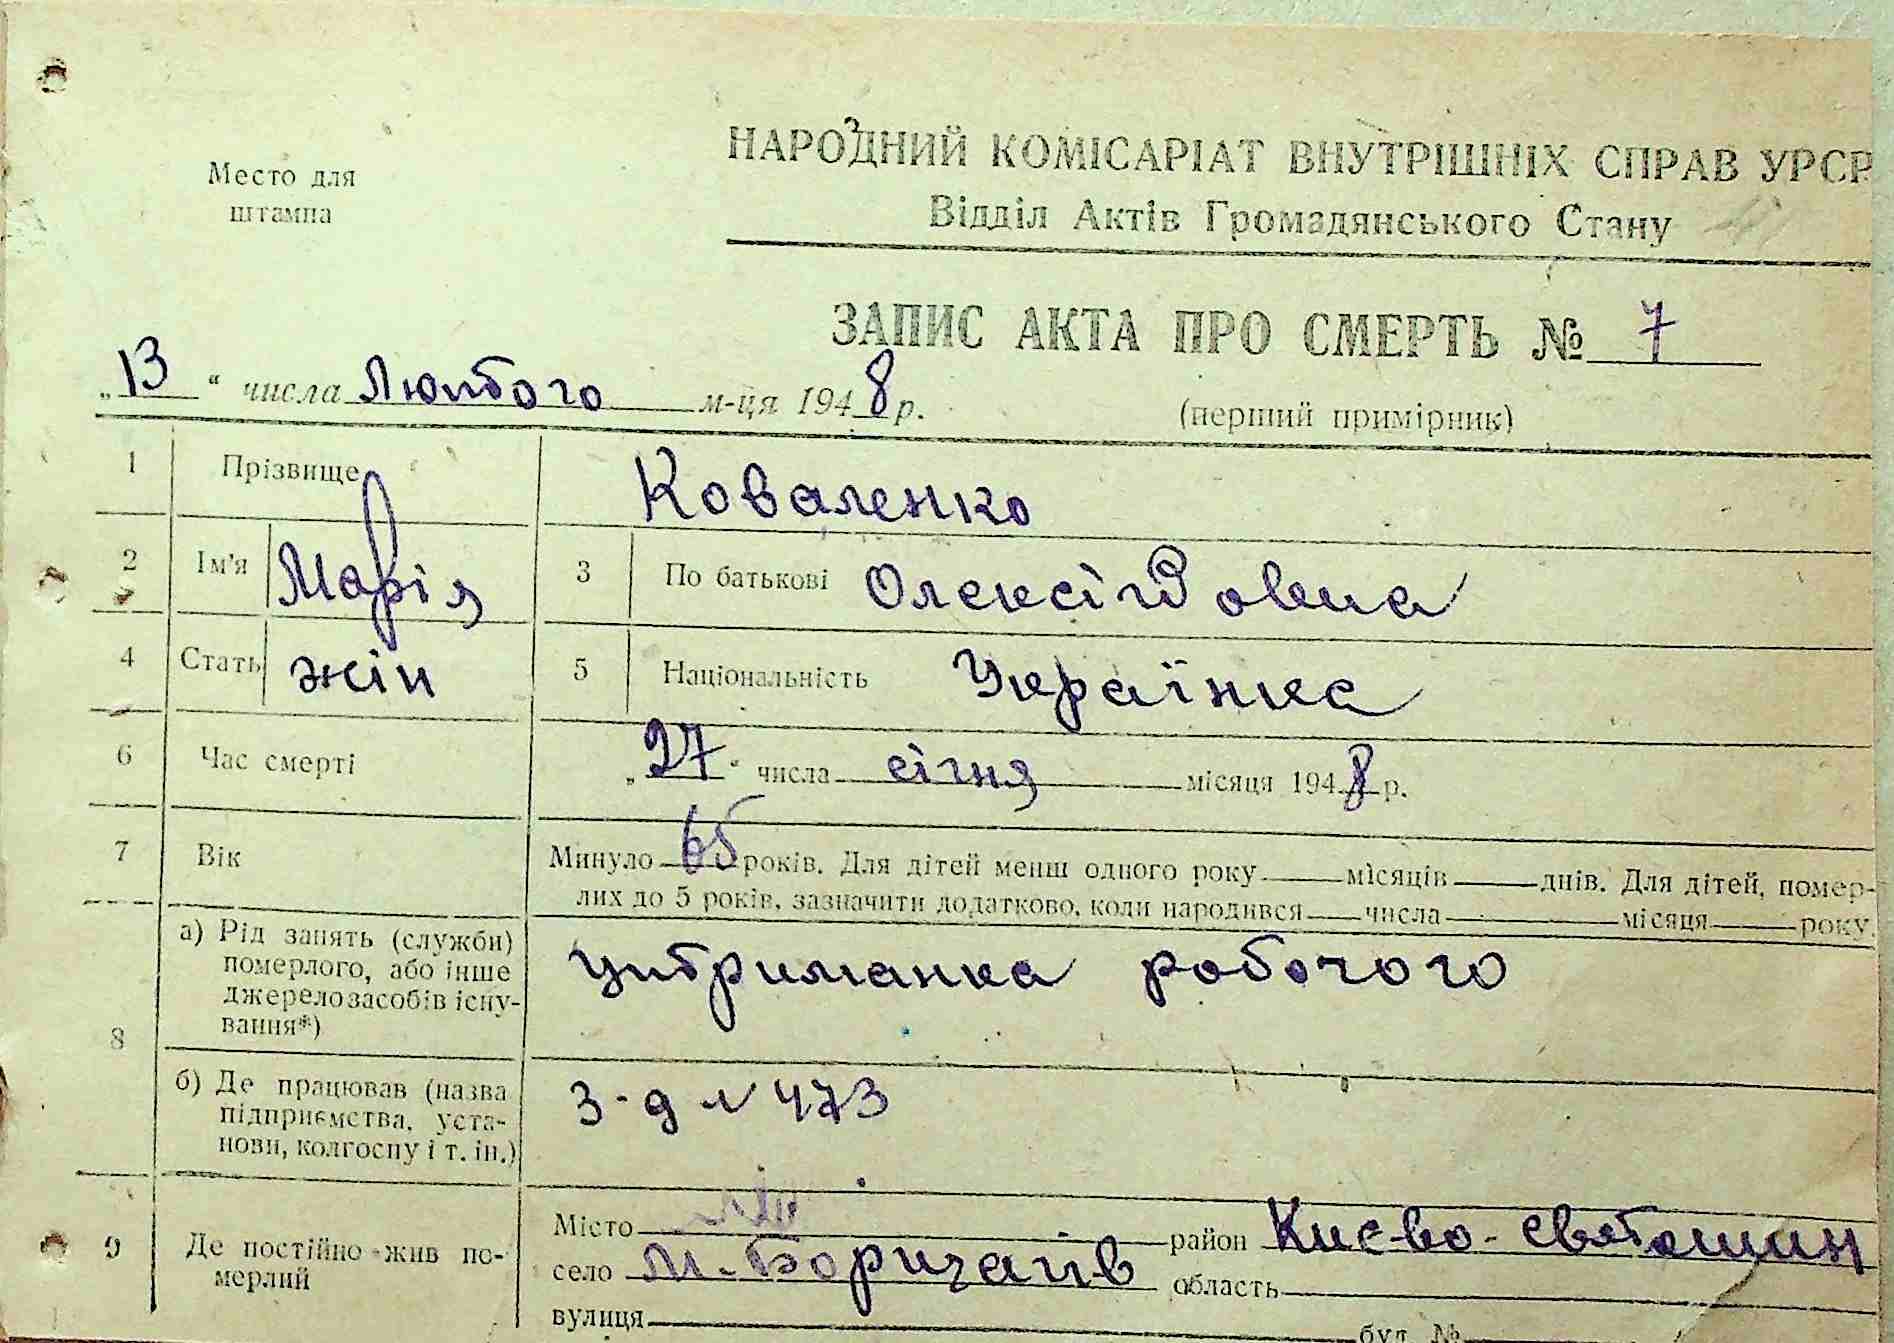 Место для
штампа
НАРОДНИЙ КОМІСАРІАТ ВНУТРІШНІХ СПРАВ УРСР
Відділ Актів Громадянського Стану
ЗАПИС АКТА ПРО СМЕРТЬ № 7
„13“ числа Лютого м-ця 1948 р.
(перший примірник)
1 Прізвище Коваленко
2 Ім'я Марія 3 По батькові Олексіївна
4 Стать жін 5 Національність Українка
6 Час смерті „27“ числа січня місяця 1948 р.
7 Вік Минуло 65 років. Для дітей менш одного року місяців днів. Для дітей, помер-
лих до 5 років, зазначити додатково, коли народився числа місяця року.
8 а) Рід занять (служби)
померлого, або інше
джерело засобів існу-
вання*)
утриманка робочого
б) Де працював (назва
підприємства, уста-
нови, колгоспу і т. ін.)
З-д № 473
9 Де постійно жив по-
мерлий
Місто район Києво-Святошин
село М-Борщагів область
вулиця буд. №